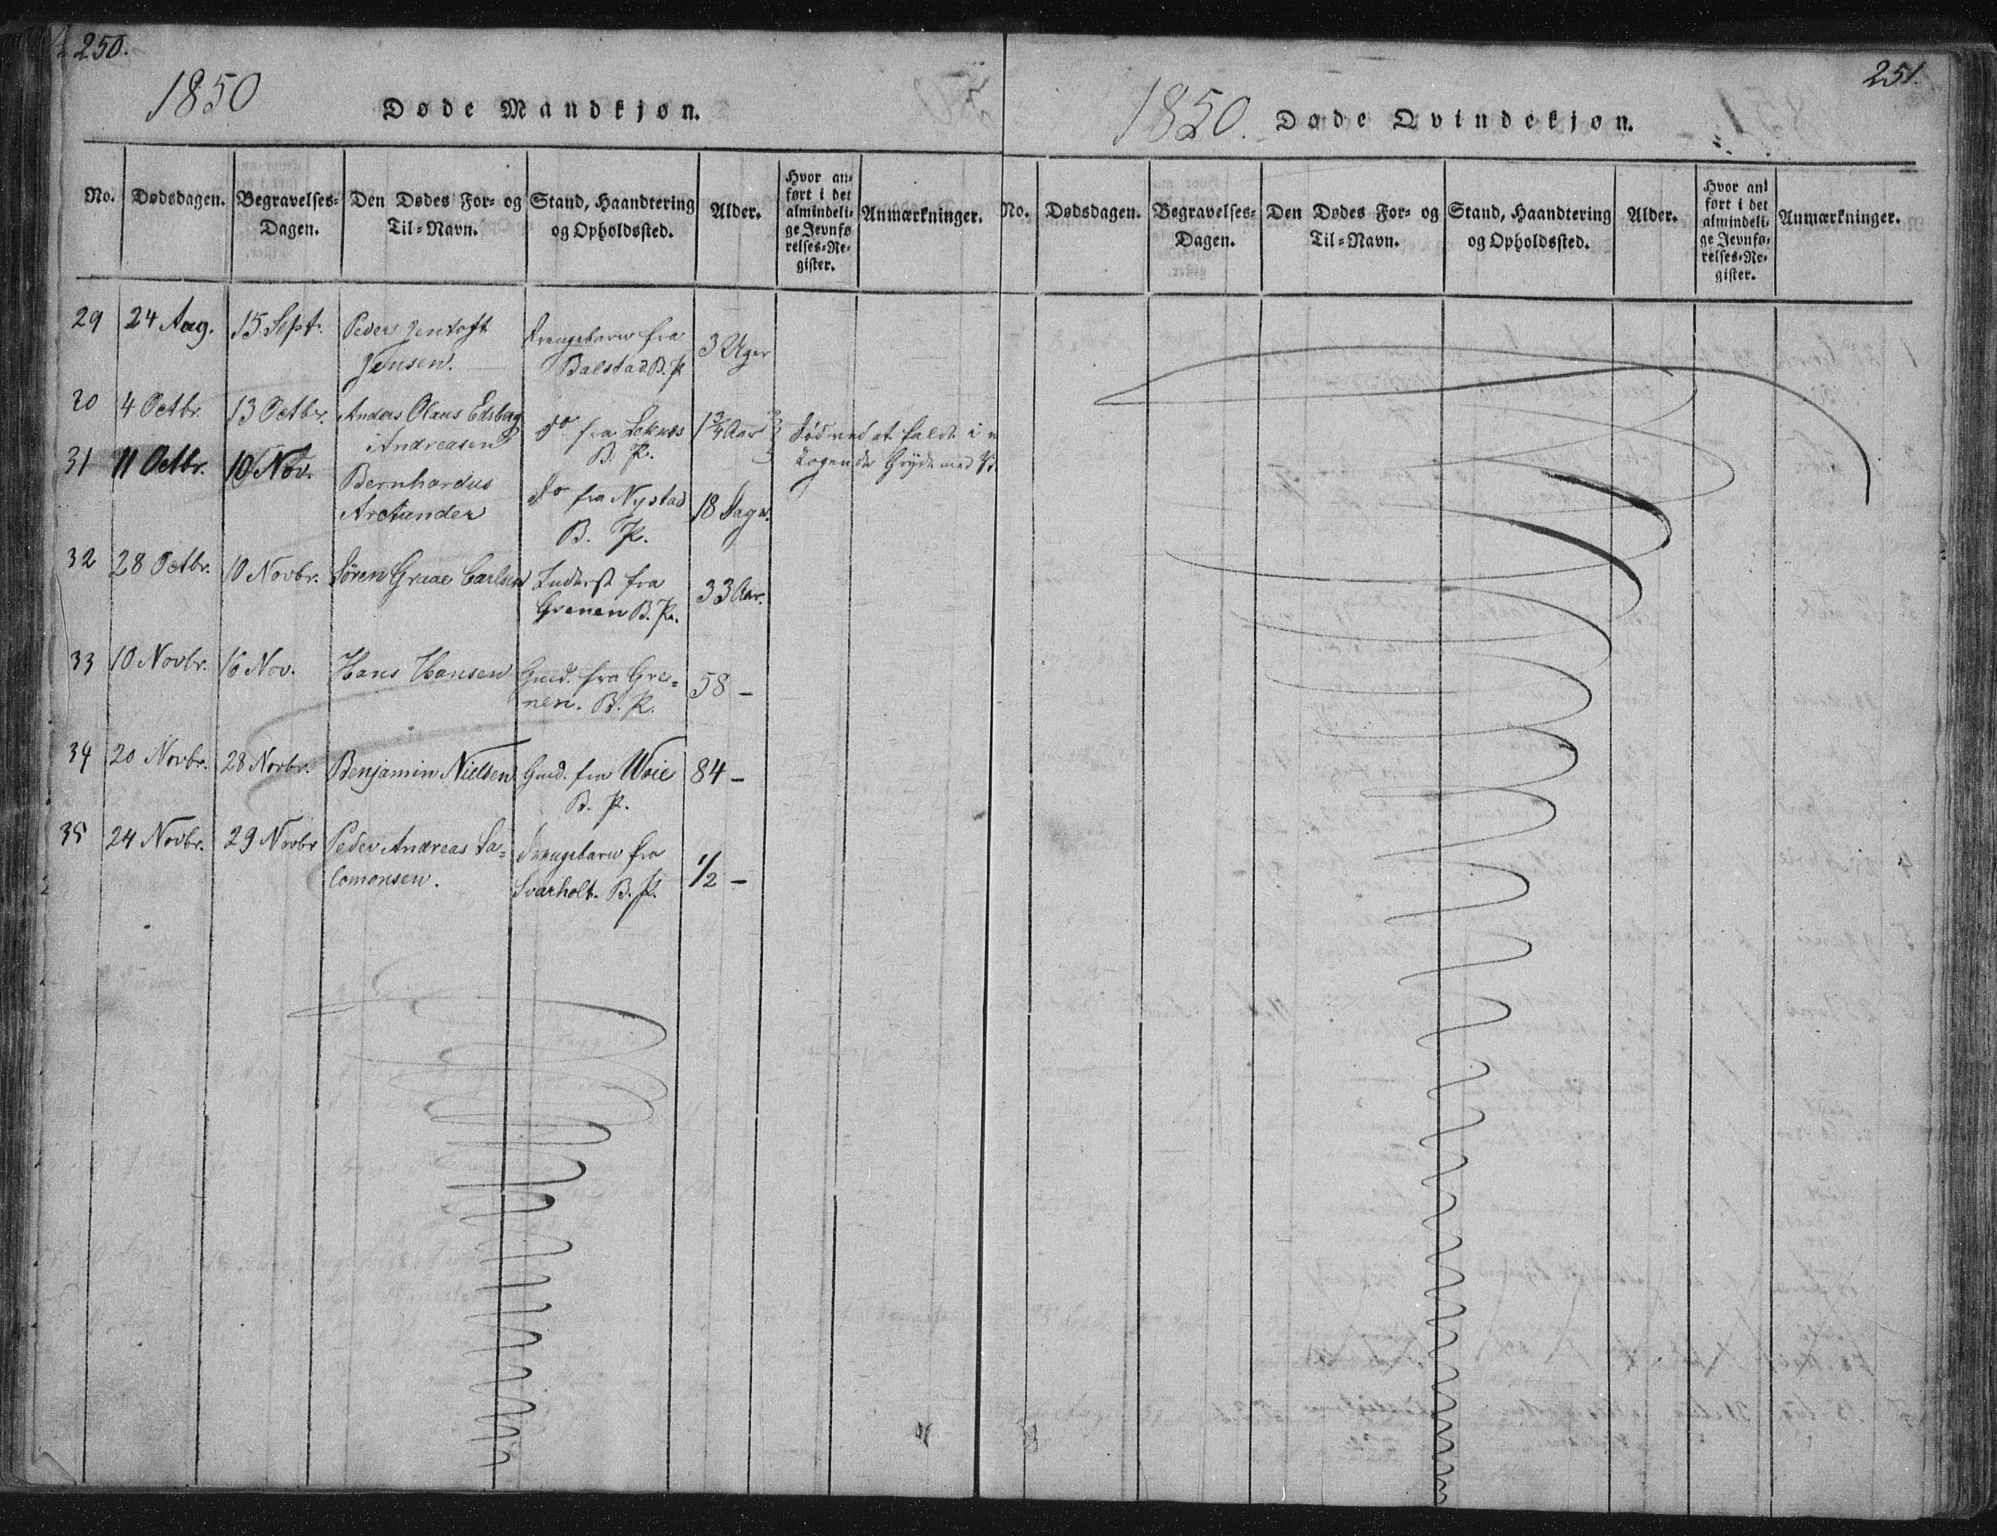 250.
1850
Døde Mandkjøn.
No. Dødsdagen. Begravelses-Dagen. Den Dødes For- og Til-Navn. Stand, Haandtering og Opholdssted. Alder. Hvor anført i det almindelige Jevnførelses-Register. Anmærkninger.
29 24 Aug. 15 Sept. Peder Jentoft Drengebarn fra 3 Uger
Jensen. Balstad B. P.
30 4 Octbr. 13 Octbr. Anders Olaus Edsberg Do fra Leknes 1 3/4 Aar Død ved at falde i
Andreasen B. P. kogende Gryde med
31 11 Octbr. 10 Nov. Bernhardus Do fra Nystad 18 Dage.
Arctander B. P.
32 28 Octbr. 10 Novbr. Søren Graae Carlsen Inderst fra 33 Aar.
Grenen B. P.
33 10 Novbr. 16 Nov. Hans Hansen Gmd. fra Gre= 58 –
nen. B. P.
34 20 Novbr. 28 Novbr. Benjamin Nielsen Gmd. fra Woie 84 –
B. P.
35 24 Novbr. 29 Novbr Peder Andreas Sa= Drengebarn fra 1/2 –
lomonsen. Svarholt. B. P.
251.
1850.
Døde Qvindekjøn.
No. Dødsdagen. Begravelses-Dagen. Den Dødes For- og Til-Navn. Stand, Haandtering og Opholdssted. Alder. Hvor anført i det almindelige Jevnførelses-Register. Anmærkninger.